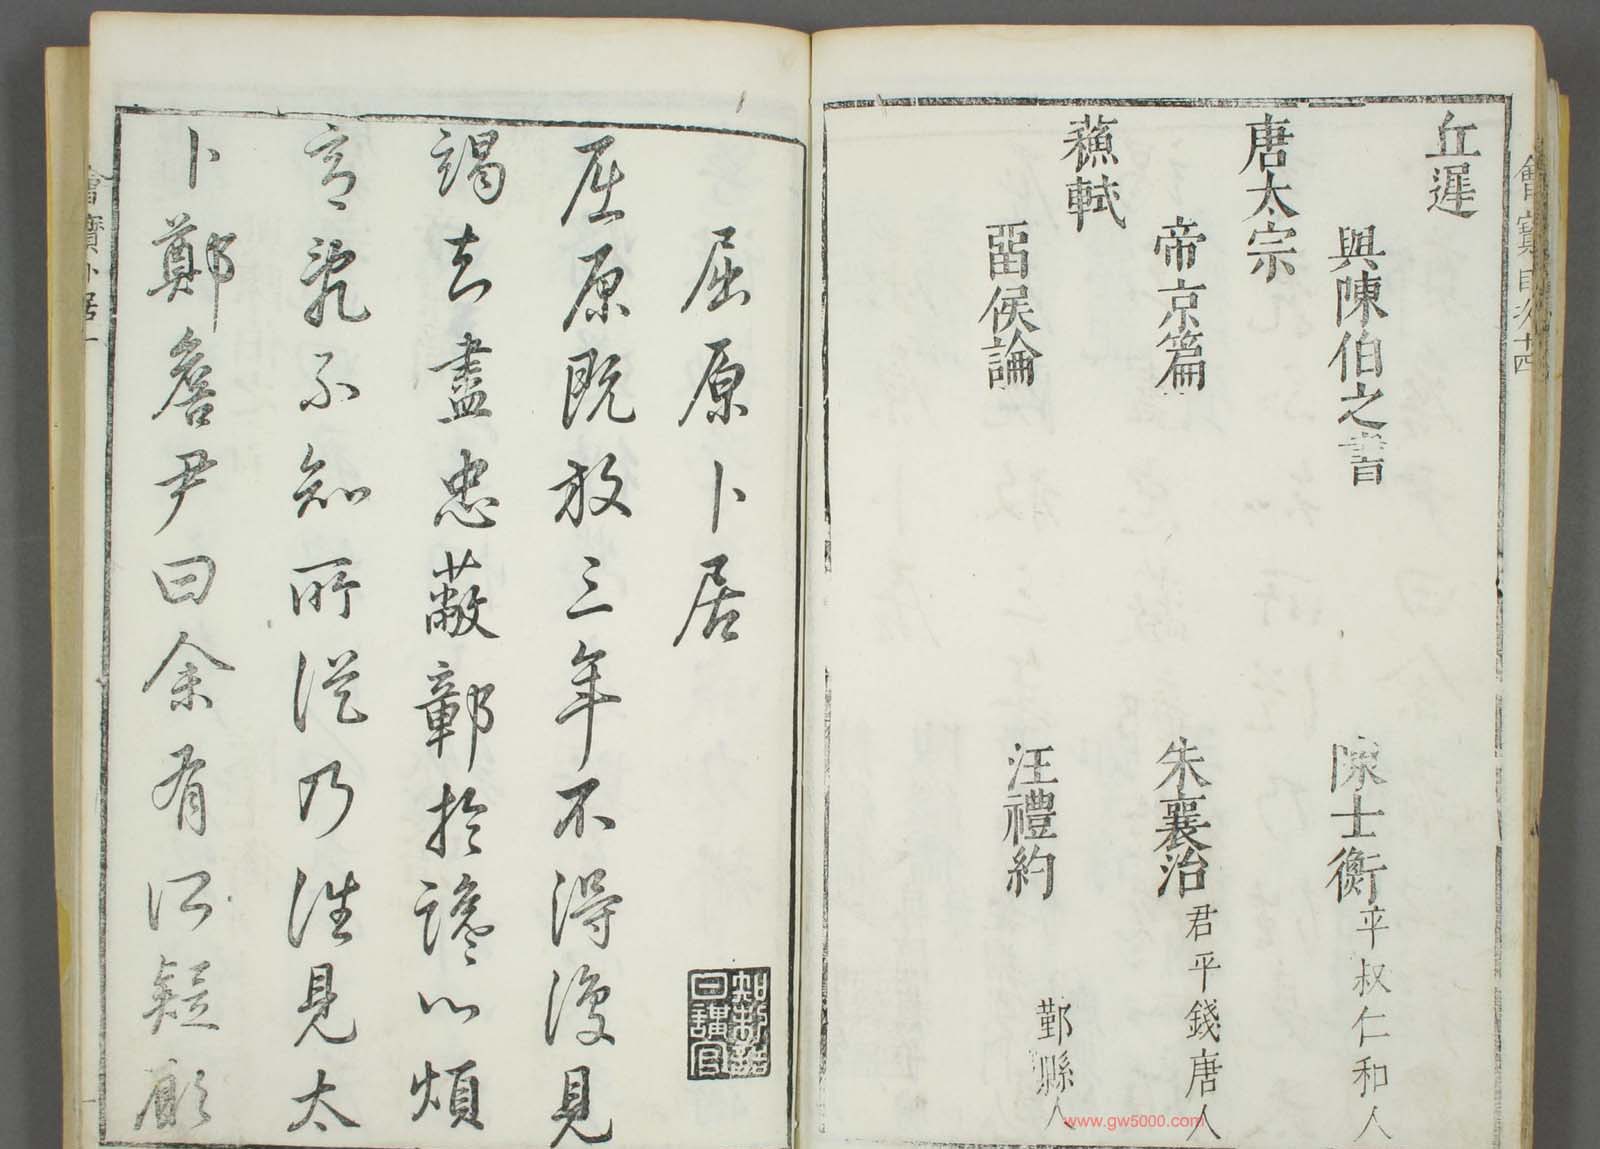 丘遲
與陳伯之書
陳士衡 平叔仁和人
唐太宗
帝京篇
朱襄治 君平錢唐人
蘓軾
畱侯論
汪禮約 鄞縣人
屈原卜居
屈原既放三年不得復見
竭去盡忠蔽鄣於讒心煩
意亂不知所從乃往見太
卜鄭詹尹曰余有所疑願
www.gw5000.com